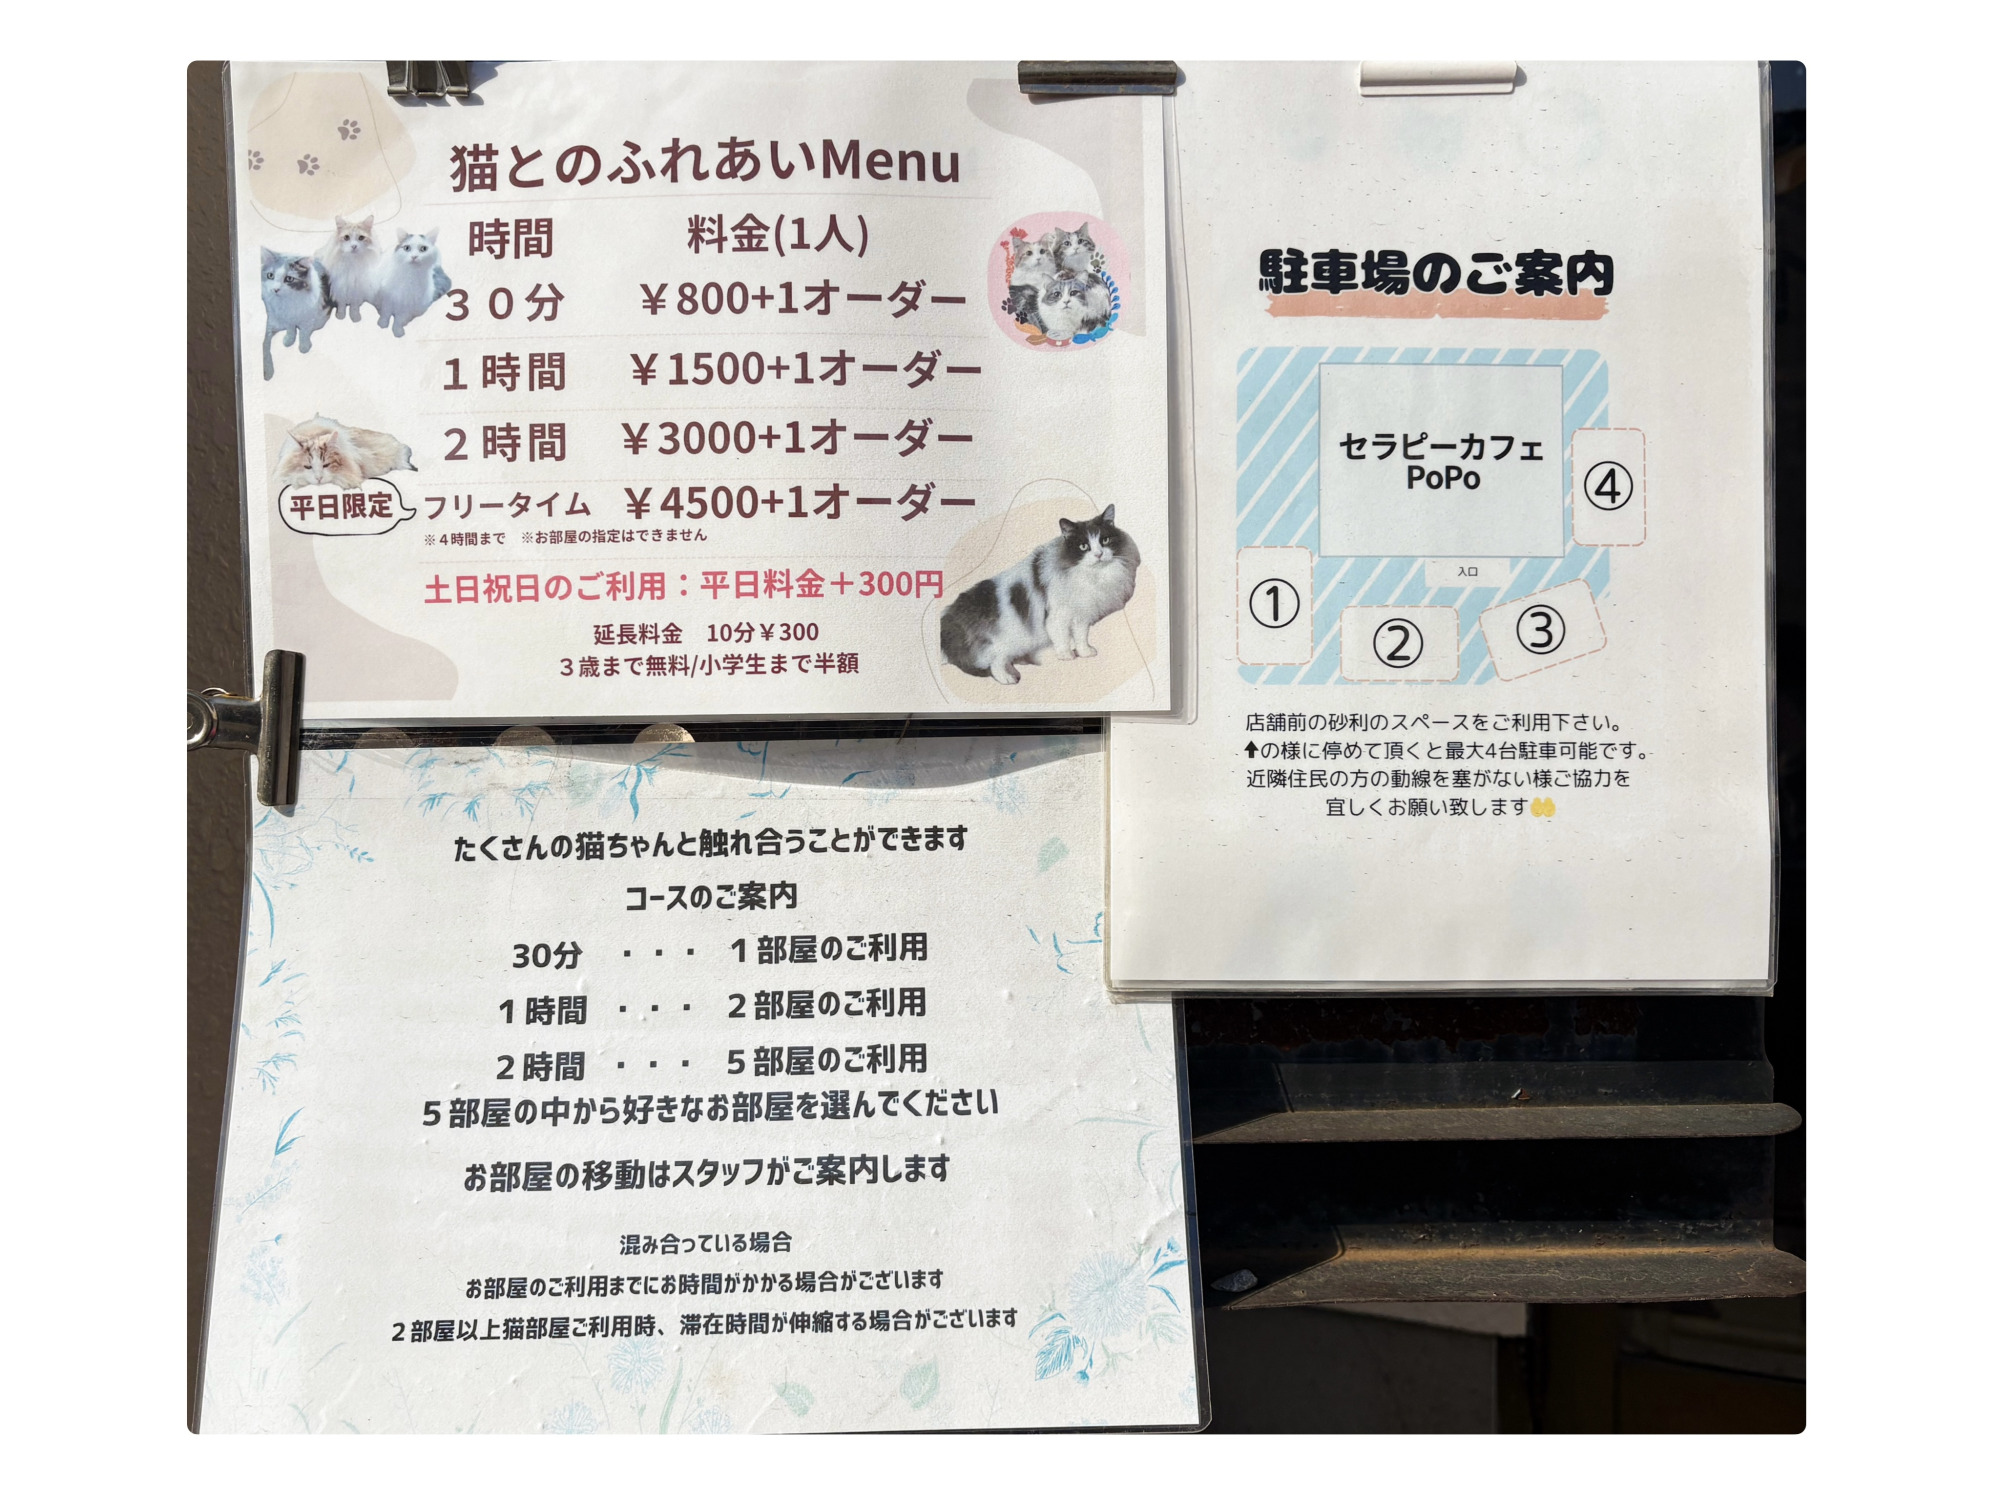 猫とのふれあいMenu
時間 料金(1人)
３０分 ￥800+1オーダー
１時間 ￥1500+1オーダー
２時間 ￥3000+1オーダー
平日限定 フリータイム ￥4500+1オーダー
※４時間まで ※お部屋の指定はできません
土日祝日のご利用：平日料金＋300円
延長料金 10分￥300
３歳まで無料/小学生まで半額
駐車場のご案内
セラピーカフェ
PoPo
入口
①
②
③
④
店舗前の砂利のスペースをご利用下さい。
⬆の様に停めて頂くと最大4台駐車可能です。
近隣住民の方の動線を塞がない様ご協力を
宜しくお願い致します🤲
たくさんの猫ちゃんと触れ合うことができます
コースのご案内
30分 ・・・ １部屋のご利用
１時間 ・・・ ２部屋のご利用
２時間 ・・・ ５部屋のご利用
５部屋の中から好きなお部屋を選んでください
お部屋の移動はスタッフがご案内します
混み合っている場合
お部屋のご利用までにお時間がかかる場合がございます
２部屋以上猫部屋ご利用時、滞在時間が伸縮する場合がございます